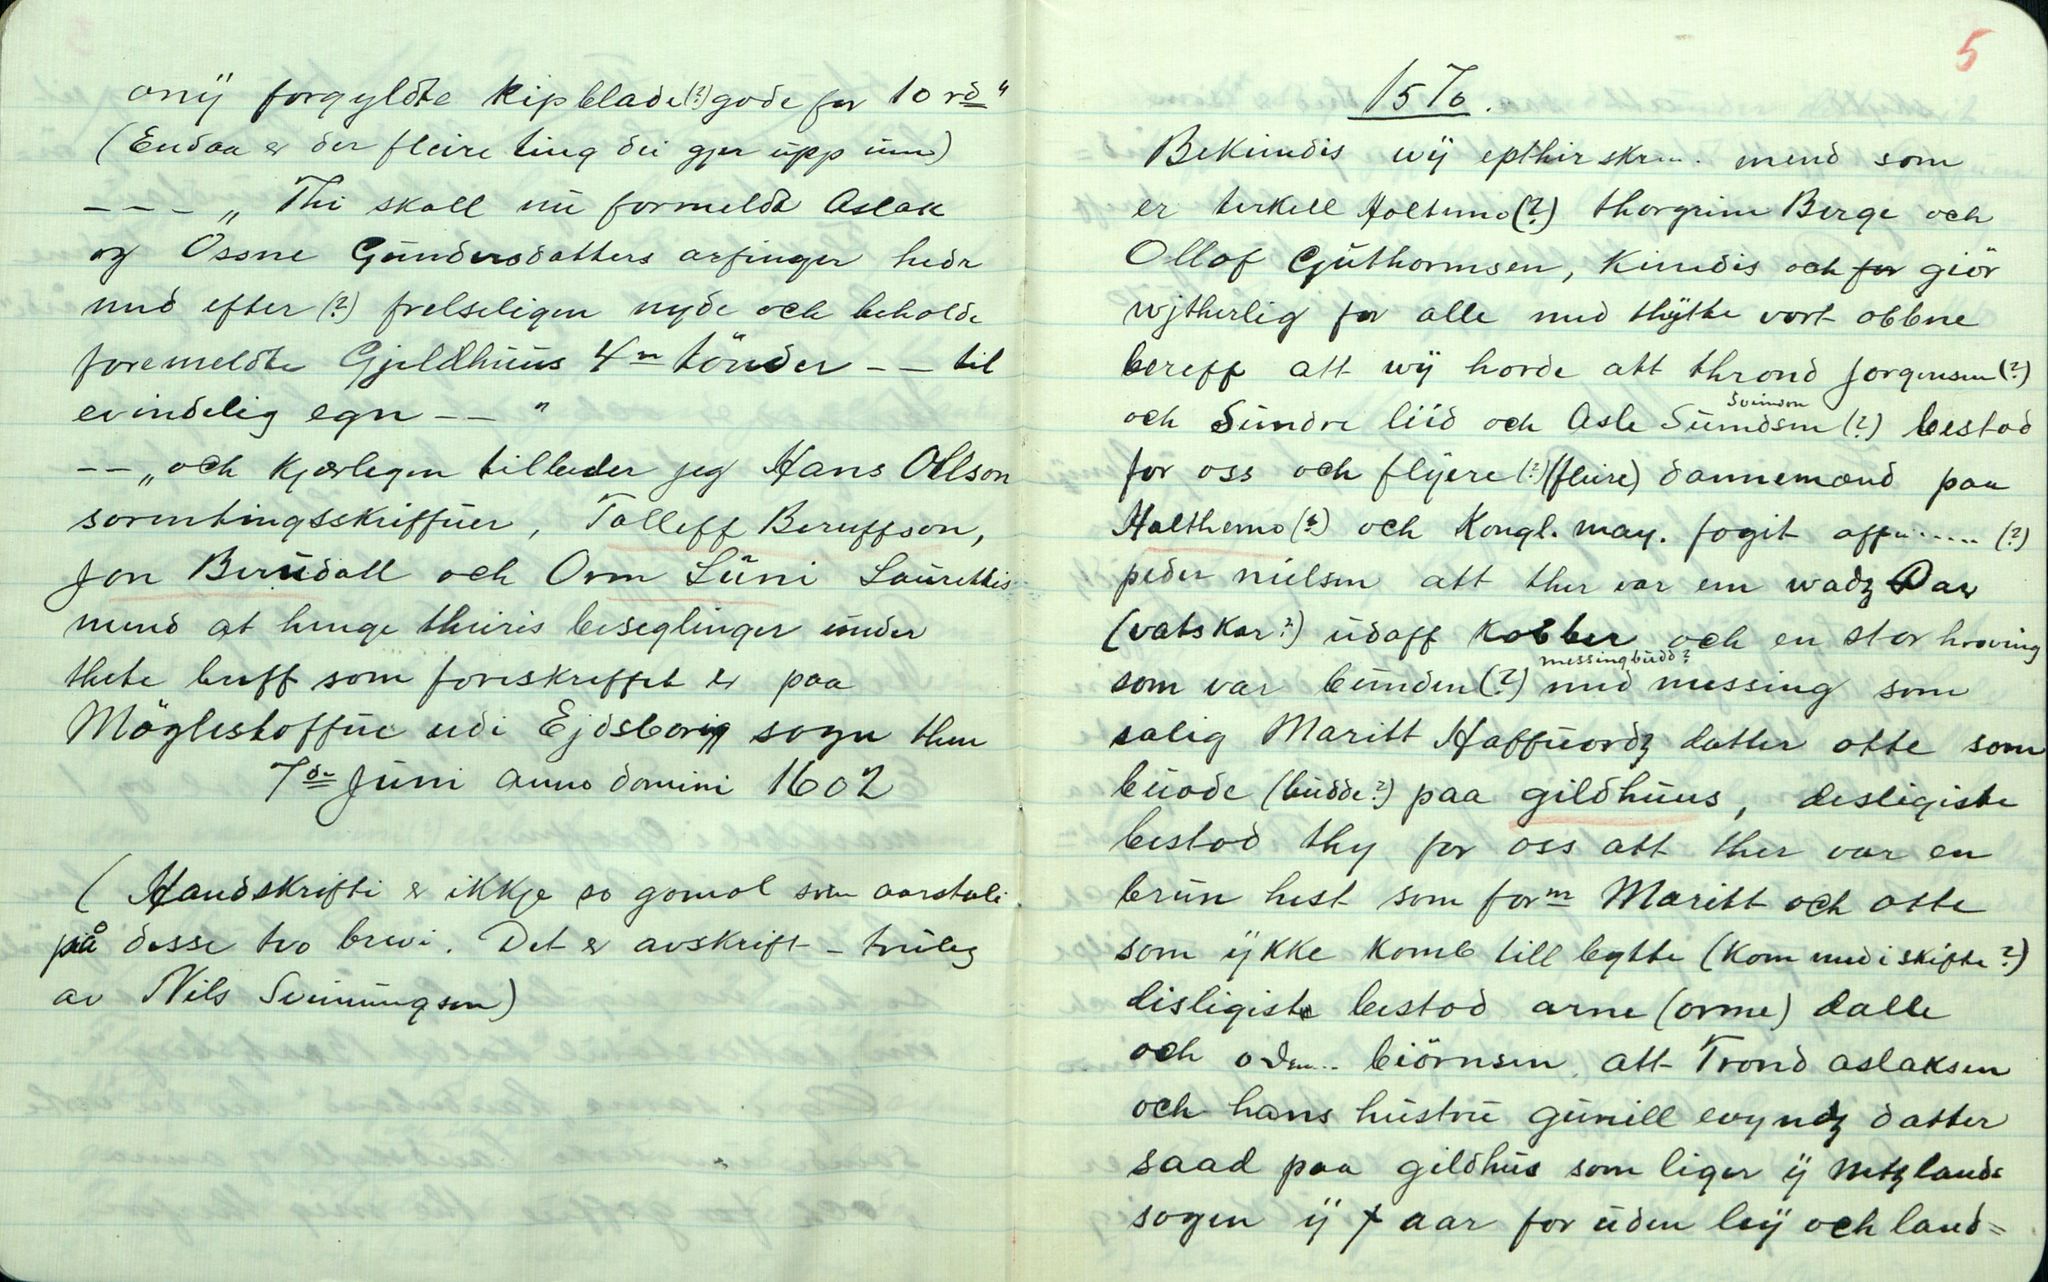 onÿ forgyldte Kipblade(?) gode for 10 rd"
(Endaa er der fleire ting dei gjer upp um)
--- „ Thi skall nu formeldt Aslak
og Össne Gundersdatters arfinger hedr
nud efter (?) frelseligen nyde och beholde
foremeldte Gjeldhuus 4 m tönder -- til
evindelig egn -- "
-- „och Kjærlegen tilbeder jeg Hans Ollson
sorentingsskriffuer, Talleff Beruffson,
Jon Berudall och Orm Luni Laurettis
mend at henge theiris beseglinger under
thete breff som foreskreffet er paa
Möglestoffue udi Ejdsborig sogn then
7de Juni anno domini 1602
( Handskrifti er ikkje so gomol som aarstali
på desse tvo brevi. Det er avskrift - truleg
av Nils Sveinungsen)
5
1576.
Bekiendis wÿ epthirskr.... mend som
er terkell Holtemo(?) thorgrim Berge och
Ollof Guthormsen, Kiendis och for giör
wjtherlig for alle med thÿtte vort obbne
breff att wÿ horde att thrond Jorgensen(?)
Sveinson
och Sundre liid och Asle Sumdsen (?) bestod
for oss och flÿere (?) (fleire) dannemænd paa
Holthemo(?) och Kongl. may. fogit aff..... (?)
peder nielsen att ther var em wadz Dar
(vatskar?) udaff Kobber och en stor hroving
messingbudd?
som var bunden(?) med messing som
salig Maritt Haffuordz datter otte som
buode (budde?) paa gildhuus, desligiste
bestod thy for oss att ther var en
brun hest som form Maritt och otte
som ÿkke Komb till bytte (Kom med i skifte?)
disligiste bestod arne (orme) dalle
och od.... biörnsen att Trond aslaksen
och hans hustru gunill evyndz datter
saad paa gildhus som liger ÿ Metzlands
sogen ÿ X aar for uden leÿ och land=